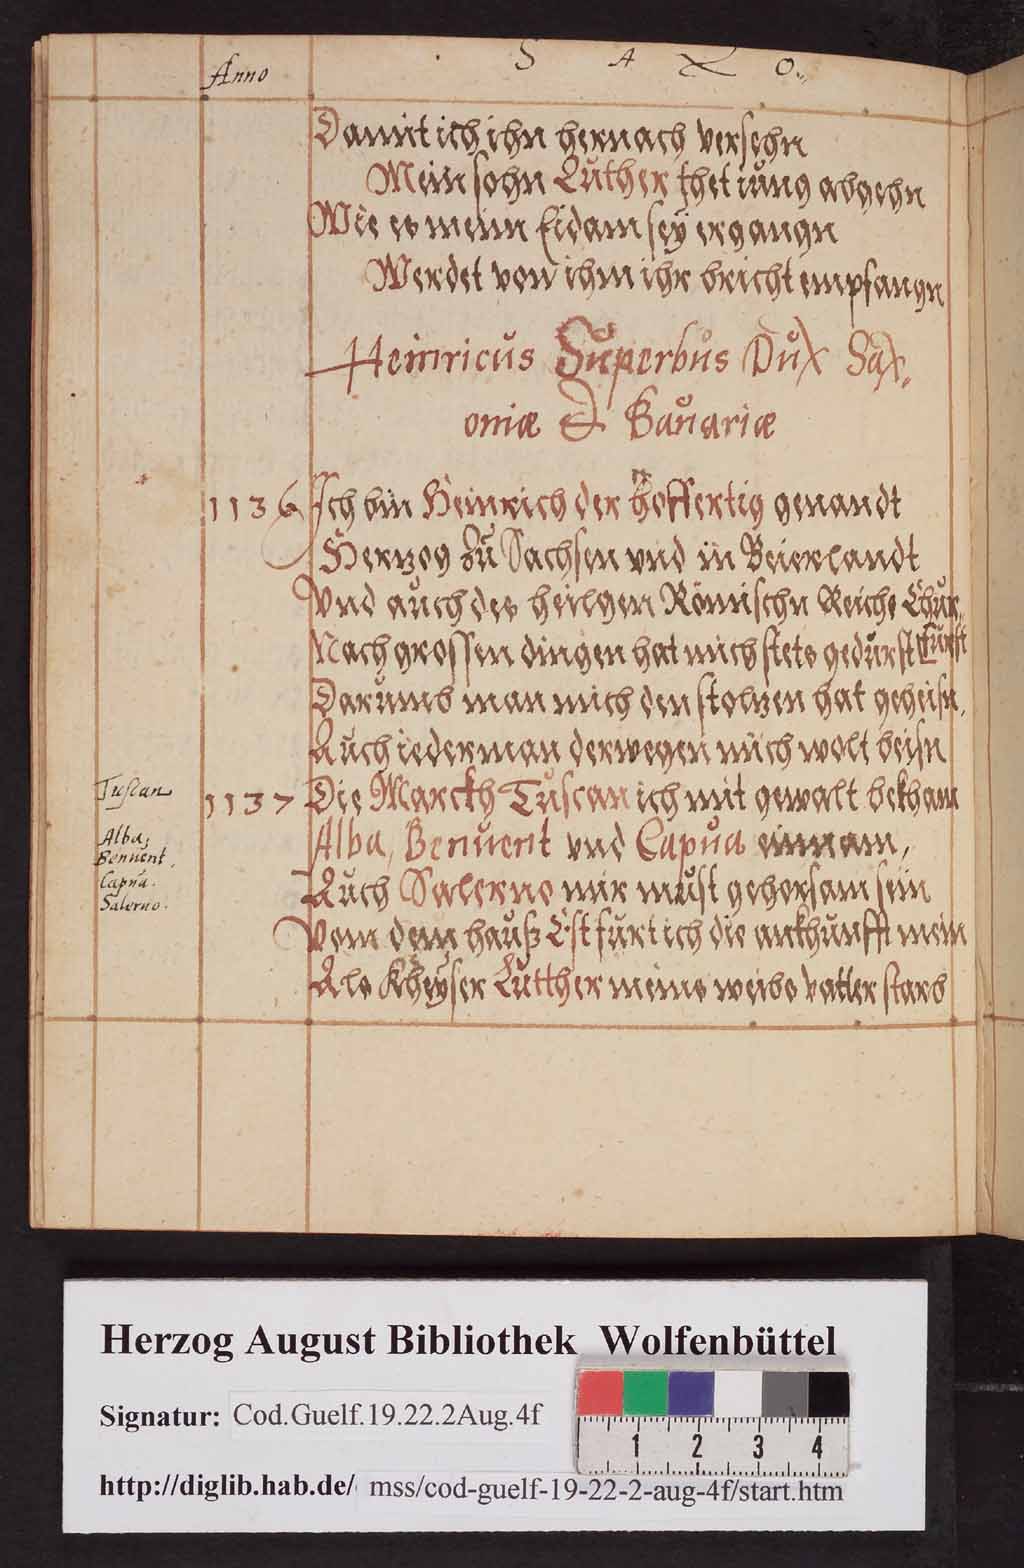 Anno
S A X O.
Damit ich ihn hernach versehn
Mein sohn Luther thet iung abgehn
Wie es meim Eidam sey ergangn
Werdet von ihm ihr bricht empfangn
Heinricus Superbus Dux Sax,
oniæ & Bauariæ
1136 Ich bin Heinrich der hoffertig genandt
Herzog zu Sachsen vnd in Beierlandt
Vnd auch des heilgen Römischn Reichs Chur,
Nach grossen dingen hat mich stets gedurst Furst
Darumb man mich den stolzen hat geheisn,
Auch iederman derwegen mich wolt beisn
Tuscan
1137 Die Marckh Tuscan ich mit gewalt bekham
Alba,
Alba, Benuent vnd Capua einnam,
Benuent,
Capua.
Auch Salerno mir must gehorsam sein
Salerno.
Vom dem hauß Est furt ich die ankhunfft mein
Als Kheyser Lutther meins weibs vatter starb
Herzog August Bibliothek Wolfenbüttel
Signatur: Cod.Guelf.19.22.2Aug.4f
1 2 3 4
http://diglib.hab.de/ mss/cod-guelf-19-22-2-aug-4f/start.htm